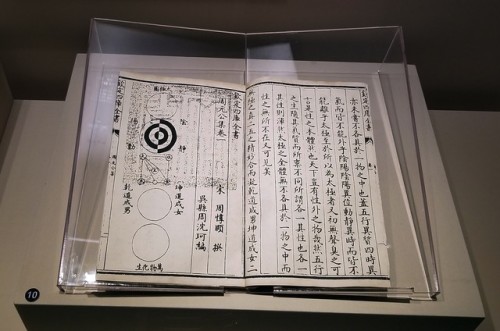 欽定四庫全書
亦未嘗不各具於一物之中也蓋五行異質四時異
氣而皆不能外乎陰陽陰陽異位動靜異時而皆不
能離乎太極至於所以為太極者又初無聲臭之可
言是性之本體然也天下豈有性外之物哉然五行
之生隨其氣質而所稟不同所謂各一其性也各一
其性則渾然太極之全體無不各具於一物之中而
性之無所不在又可見矣
極之真二五之精妙合而凝乾道成男坤道成女二
欽定四庫全書
周元公集卷一
宋 周惇頤 撰
吳縣周沈珂編
太極圖
陰靜
陽動
坤道成女
乾道成男
萬物化生
欽定四庫全書
10